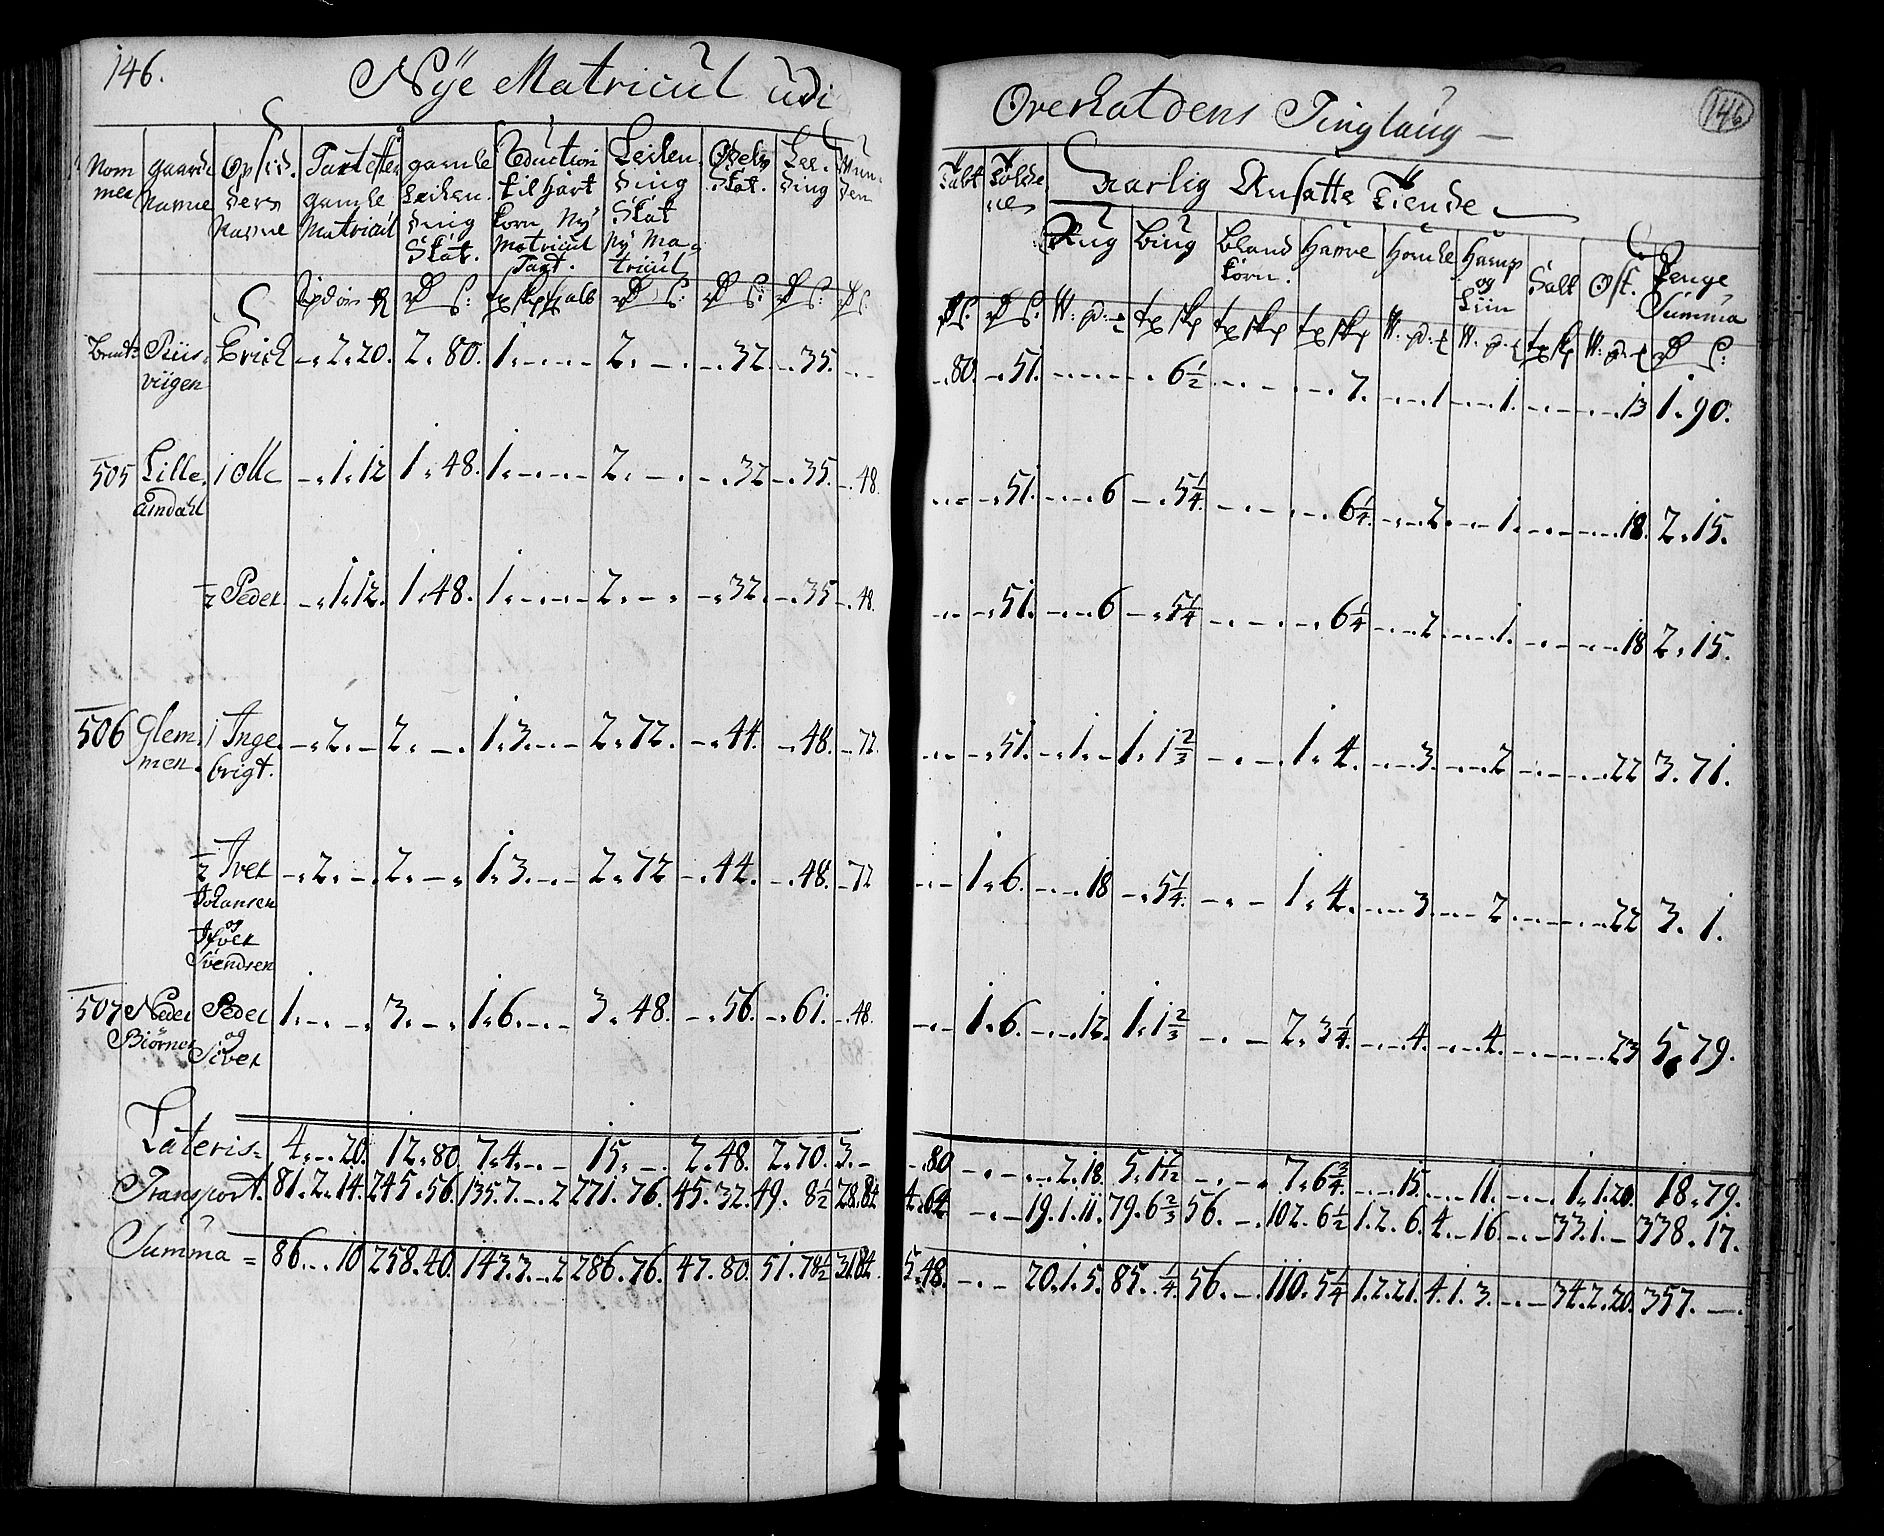 146. Nÿe Matricul udi Overhaldens Tinglaug 146
Nommer | gaards Nafne | Opsid: ders Nafne | Taxt efter gamle Matricul | gamle Leilending Skat. | Reduction til hart korn Nÿ Matricul Taxt. | Leilending Skat nÿ Matricul | Odels Skat. | Lee: ding | Mun: den | Aarlig Ansatte Tiende
Rug | Bÿug | bland korn. | Hafre | Homle | Hamp og Liin | Salt | Ost. | Penge Summa
Riis: vügen | Erich | -. 2. 20. | 2. 80. | 1. - - - | 2. - - | -. 32. | -. 35. | - - | -. 80. | -. 51. | - - - | -. 6 1/2 | - - | -. 7. | - - 1 | - - 1. | - - | - - 13 | 1. 90.
505 | Lille Amdahl | 1 Olle | -. 1. 12 | 1. 48. | 1. - - - | 2. - - | -. 32 | -. 35. | -. 48. | - - | -. 51. | - - 6 | -. 5 1/4 | - - | -. 6 1/4 | - - 2. | - - 1. | - - | - - 18. | 2. 15.
1/2 Peder | -. 1. 12. | 1. 48. | 1. - - - | 2. - - | -. 32. | -. 35 | -. 48. | - - | -. 51. | - - 6 | -. 5 1/4 | - - | -. 6 1/4 | - - 2 | - - 1. | - - | - - 18 | 2. 15.
506 | Glem: men. | 1 Inge: brigt. | -. 2. - | 2. - - | 1. 3. - - | 2. 72. | -. 44. | -. 48. | - 72. | - - | -. 51. | - 1. - | 1. 1 2/3 | - - | 1. 4. | - - 3. | - - 2 | - - | - - 22 | 3. 71.
1/2 Iver | -. 2. - | 2. - - | 1. 3. - - | 2. 72 | -. 44. | -. 48. | - 72 | - - | 1. 6. | - - 18 | -. 5 1/4. | - - | 1. 4. | - - 3. | - - 2. | - - | - - 22 | 3. 1.
Johansen
og
Ifver
Svendsen
507 | Neder Biörner | Peder og Siver | 1. - - | 3. - - | 1. 6. - - | 3. 48. | -. 56. | -. 61. | -. 48. | - - | 1. 6. | - - 12. | 1. 1 2/3 | - - | 2. 3 1/4. | - - 4. | - - 4. | - - | - - 23 | 5. 79.
Lateris: | 4. - 20. | 12. 80. | 7. 4. - - | 15. - | 2. 48. | 2. 70. | 3. - | -. 80. | - - | - 2. 18. | 5. 1 1/2 | - - | 7. 6 3/4. | - - 15. | - - 11. | - - | 1. 1. 20. | 18. 79.
Transport. | 81. 2. 14. | 245. 56. | 135. 7. - 2 | 271. 76. | 45. 32. | 49. 8 1/2 | 28. 84 | 4. 64. | - - | 19. 1. 11. | 79. 6 2/3 | 56. - | 102. 6 1/2 | 1. 2. 6. | 4. - 16 | - - | 33. 1. - | 338. 17.
Summa = | 86. - 10 | 258. 40. | 143. 3. - 2 | 286. 76. | 47. 80. | 51. 78 1/2 | 31. 84. | 5. 48. | - - | 20. 1. 5. | 85. 1/4 | 56. - | 110. 5 1/4 | 1. 2. 21. | 4. 1. 3. | - - | 34. 2. 20. | 357. -.